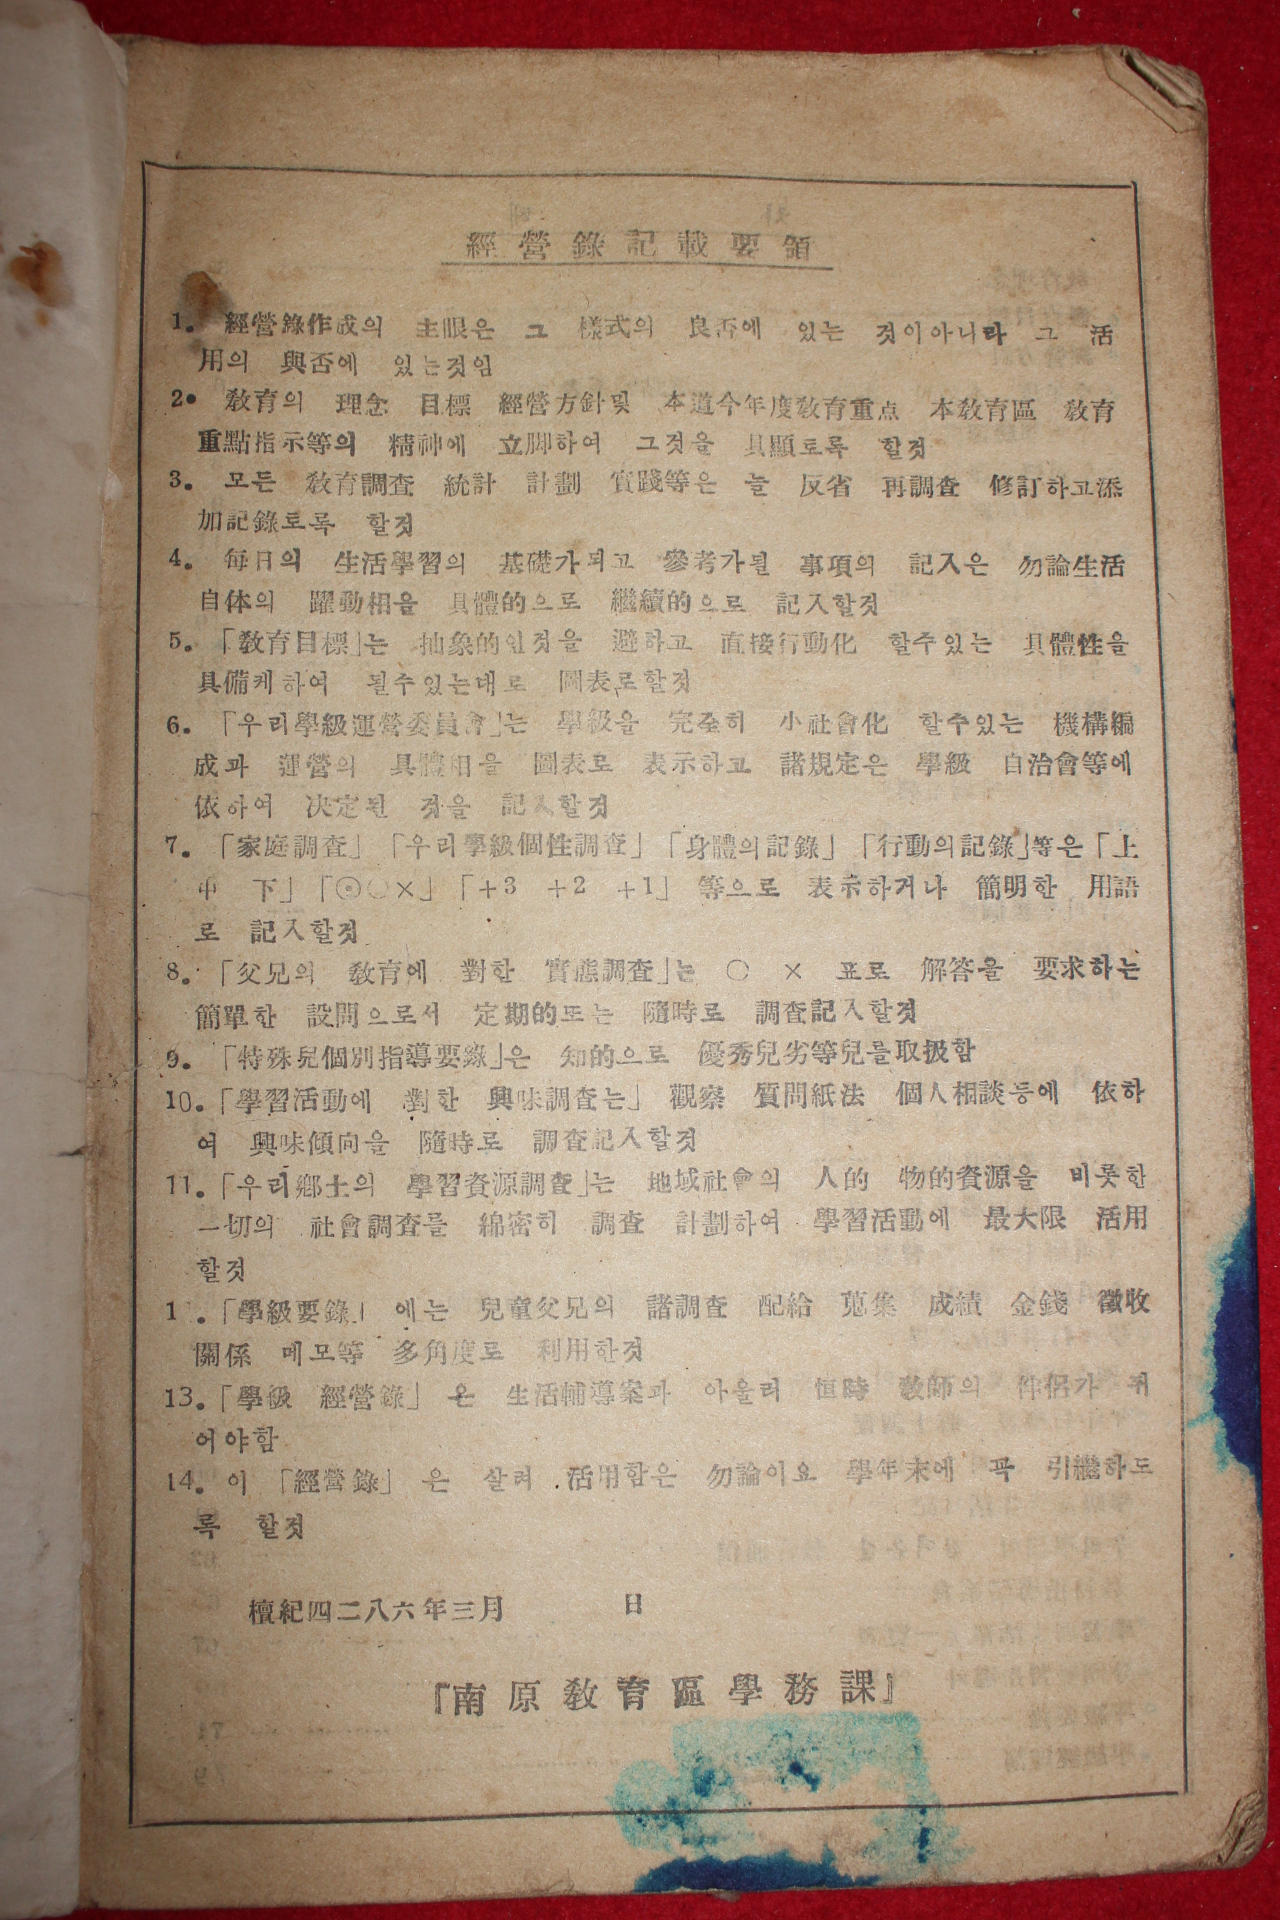 經營錄記載要領
1. 經營錄作成의 主眼은 그 樣式의 良否에 있는 것이아니라 그 活
用의 與否에 있는것임
2. 敎育의 理念 目標 經營方針및 本道今年度敎育重点 本敎育區 敎育
重點指示等의 精神에 立脚하여 그것을 具顯토록 할것
3. 모든 敎育調査 統計 計劃 實踐等은 늘 反省 再調査 修訂하고添
加記錄토록 할것
4. 每日의 生活學習의 基礎가되고 參考가될 事項의 記入은 勿論生活
自体의 躍動相을 具體的으로 繼續的으로 記入할것
5. 「敎育目標」는 抽象的인것을 避하고 直接行動化 할수있는 具體性을
具備케하여 될수있는대로 圖表로할것
6. 「우리學級運營委員會」는 學級을 完全히 小社會化 할수있는 機構編
成과 運營의 具體相을 圖表로 表示하고 諸規定은 學級 自治會等에
依하여 决定된 것을 記入할것
7. 「家庭調査」「우리學級個性調査」「身體의記錄」「行動의記錄」等은「上
中 下」「⊙○×」「+3 +2 +1」 等으로 表示하거나 簡明한 用語
로 記入할것
8. 「父兄의 敎育에 對한 實態調査」는 ○ × 표로 解答을 要求하는
簡單한 設問으로서 定期的또는 隨時로 調査記入할것
9. 「特殊兒個別指導要錄」은 知的으로 優秀兒劣等兒를取扱함
10. 「學習活動에 對한 興味調査는」 觀察 質問紙法 個人相談등에 依하
여 興味傾向을 隨時로 調査記入할것
11. 「우리鄕土의 學習資源調査」는 地域社會의 人的 物的資源을 비롯한
一切의 社會調査를 綿密히 調査 計劃하여 學習活動에 最大限 活用
할것
1 . 「學級要錄」 에는 兒童父兄의 諸調査 配給 蒐集 成績 金錢 徵收
關係 메모等 多角度로 利用한것
13. 「學級 經營錄」 은 生活輔導案과 아울러 恒時 敎師의 伴侶가 되
어야함
14. 이 「經營錄」 은 살려 活用함은 勿論이요 學年末에 꼭 引繼하도
록 할것
檀紀四二八六年三月 日
『南原敎育區學務課』